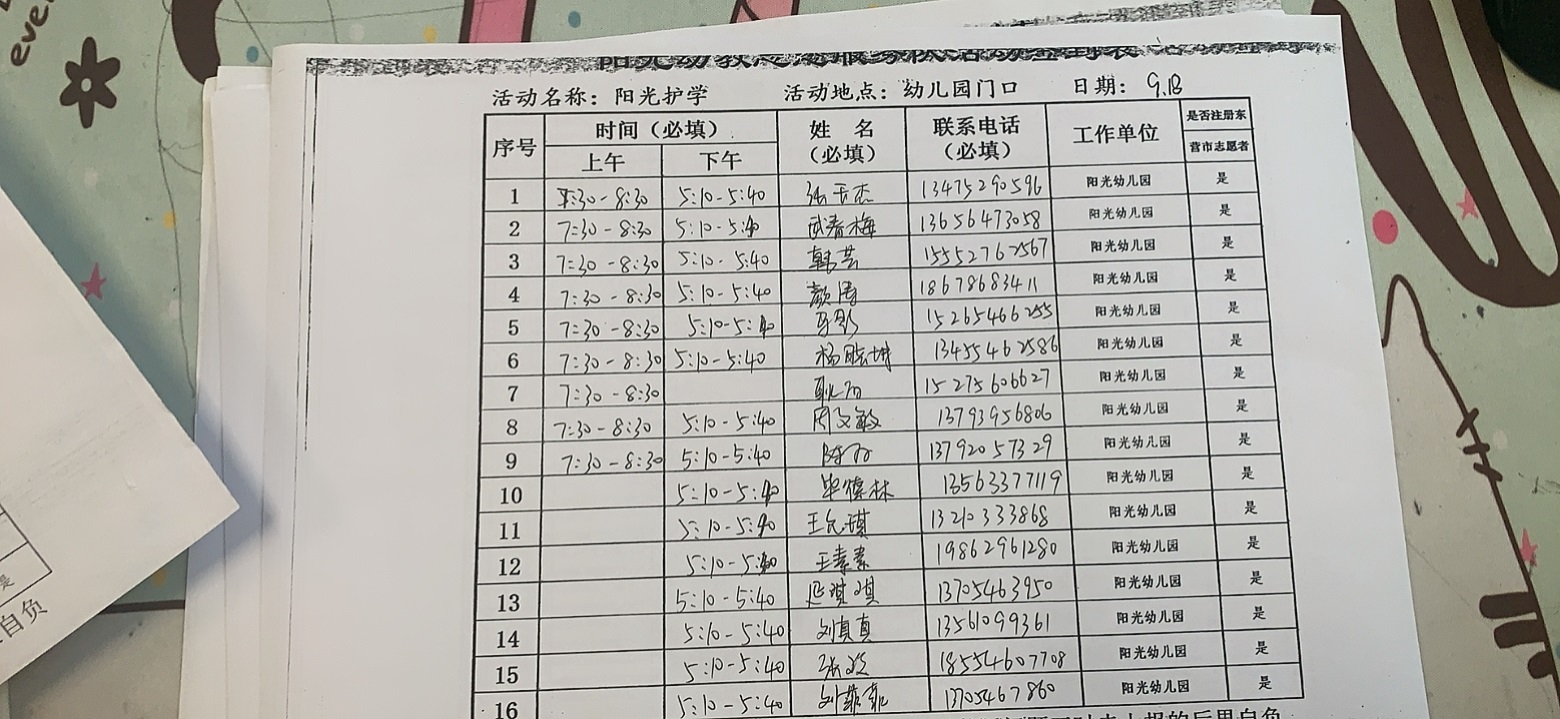 eve
活动名称：阳光护学 活动地点：幼儿园门口 日期：9.13
序号 时间（必填） 姓 名（必填） 联系电话（必填） 工作单位 是否注册东营市志愿者
上午 下午
1 7:30-8:30 5:10-5:40 张玉杰 13475290596 阳光幼儿园 是
2 7:30-8:30 5:10-5:40 武春梅 13656473058 阳光幼儿园 是
3 7:30-8:30 5:10-5:40 韩芸 15552762567 阳光幼儿园 是
4 7:30-8:30 5:10-5:40 颜涛 18678683411 阳光幼儿园 是
5 7:30-8:30 5:10-5:40 15265466255 阳光幼儿园 是
6 7:30-8:30 5:10-5:40 杨 13455462586 阳光幼儿园 是
7 7:30-8:30 15275606627 阳光幼儿园 是
8 7:30-8:30 5:10-5:40 周文敏 13793956806 阳光幼儿园 是
9 7:30-8:30 5:10-5:40 13792057329 阳光幼儿园 是
10 5:10-5:40 毕德林 13563377119 阳光幼儿园 是
11 5:10-5:40 王允琪 13210333868 阳光幼儿园 是
12 5:10-5:40 王素素 19862961280 阳光幼儿园 是
13 5:10-5:40 延琪琪 13705463950 阳光幼儿园 是
14 5:10-5:40 刘真真 13561099361 阳光幼儿园 是
15 5:10-5:40 张 18554607708 阳光幼儿园 是
16 5:10-5:40 刘菲菲 13705467860 阳光幼儿园 是
是
自负